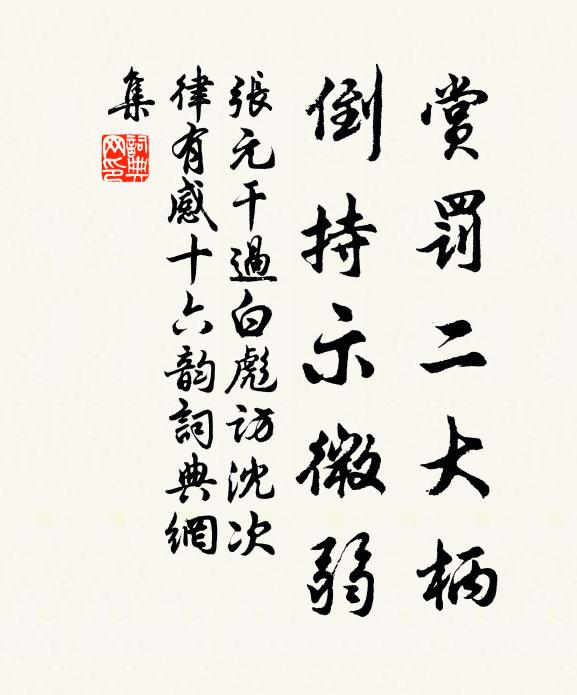 賞罰二大柄
倒持示微弱
張元干過白彪訪沈次
律有感十六韵詞典網
集
詞典網印